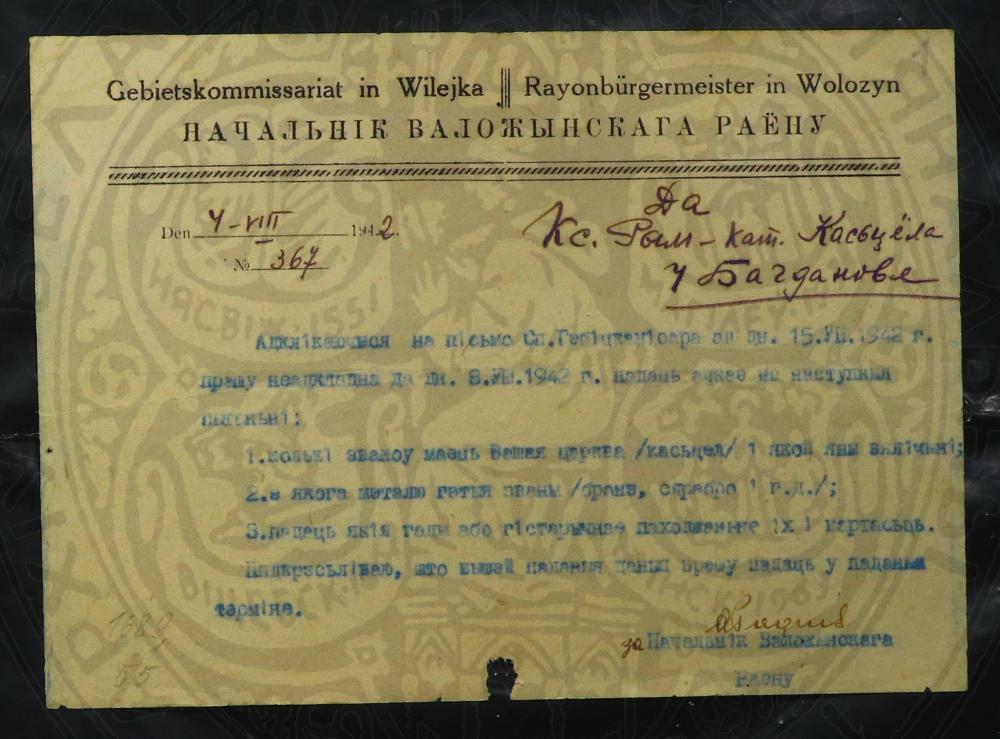 Gebietskommissariat in Wilejka Rayonbürgermeister in Wolozyn
НАЧАЛЬНІК ВАЛОЖЫНСКАГА РАЁНУ
Den 4-VIII 1942.
№ 367
Да
Кс. Рым-кат. Касьцёла
у Багданове
Адклікаючыся на пісьмо Сп. ад дн. 15.VII.1942 г.
прашу неадкладна да дн. 8.VIII.1942 г. надаць адказ на наступныя
пытаньні:
1.колькі званоу маець Вашая царква /касьцел/ і якой яны вялічыні;
2.з якога металю гэтыя званы /бронз, сярэбро і г.д./;
3.падаць якія гады або гістарычнае паходжаньне іх і вартасьць.
Падкрэсьліваю, што вышэй паданыя даныя прашу падаць у паданым
тэрміне.
за Начальнік Валожынскага
Раёну
1689
55
НЯСВІЖ 1551